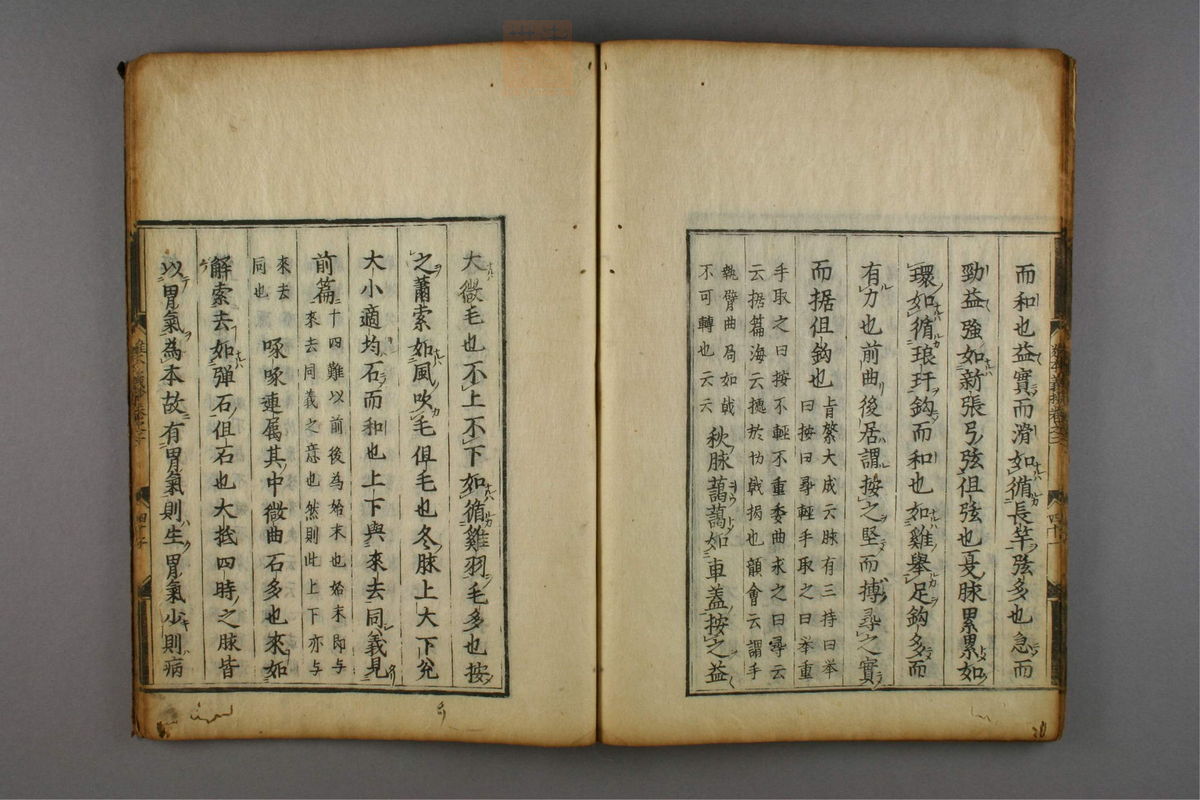 而和也益實而滑如循長竿弦多也急而
勁益強如新張弓弦但弦也夏脉累累如
環如循琅玕鈎而和也如雞舉足鈎多而
有力也前曲後居謂按之堅而搏尋之實
而据但鈎也
大成云脉有三持曰举
曰按曰尋輕手取之曰举重
手取之曰按不輕不重委曲求之曰尋云
云据篇海云 於 戟揭也韻會云謂手
執臂曲局如戟
不可轉也云云
秋脉藹藹如車蓋按之益
大微毛也不上不下如循雞羽毛多也按
之蕭索如風吹毛但毛也冬脉上大下兊
大小適均石而和也上下與來去同義見
前篇
十四難以前後為始末也始末即与
來去同義之意也然則此上下亦与
來去
同也
啄啄連属其中微曲石多也來如
解索去如弾石但石也大抵四時之脉皆
以胃氣為本故有胃氣則生胃氣少則病